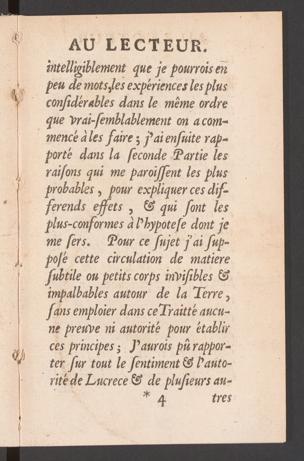 AU LECTEUR.
intelligiblement que je pourrois en
peu de mots,les expériences les plus
considérables dans le même ordre
que vrai-semblablement on a com-
mencé à les faire ; j'ai ensuite rap-
porté dans la seconde Partie les
raisons qui me paroissent les plus
probables , pour expliquer ces dif-
ferends effets , & qui sont les
plus-conformes à l'hypotese dont je
me sers. Pour ce sujet j'ai sup-
posé cette circulation de matiere
subtile ou petits corps invisibles &
impalbables autour de la Terre,
sans emploier dans ce Traitté aucu-
ne preuve ni autorité pour établir
ces principes ; J'aurois pû rappor-
ter sur tout le sentiment & l'auto-
rité de Lucrece & de plusieurs au-
* 4 tres